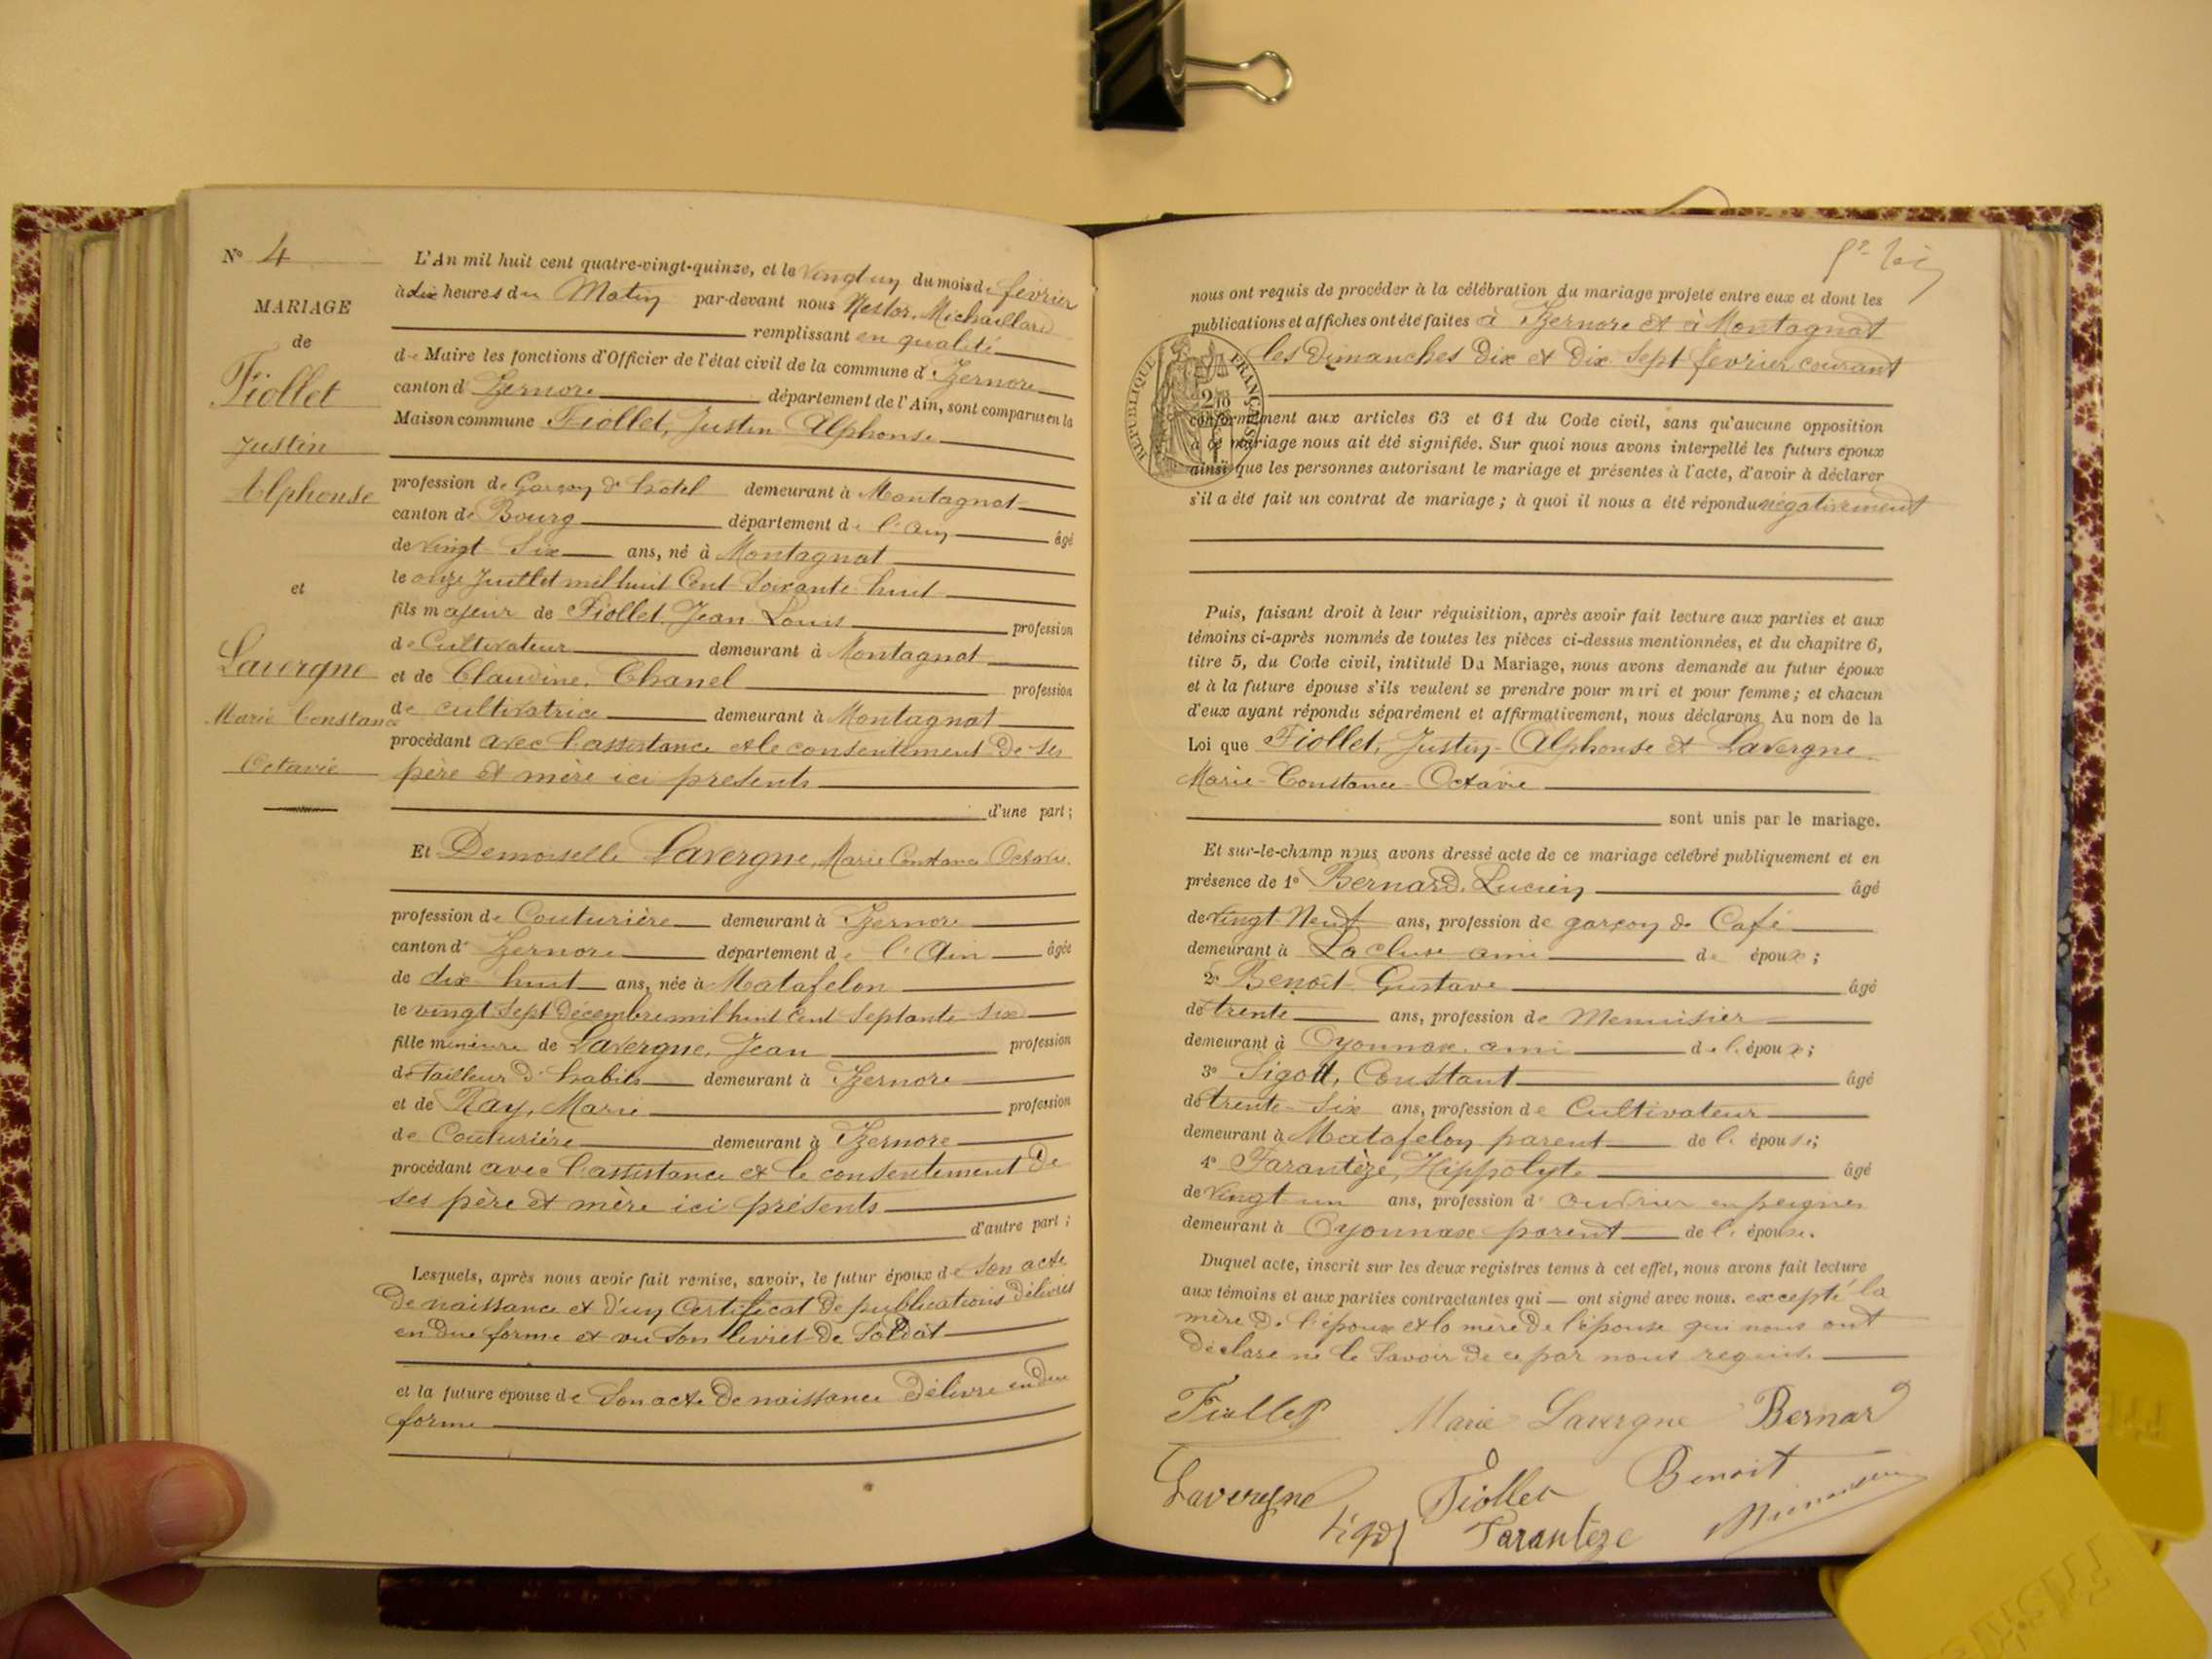 N° 4
MARIAGE
de
Fiollet
Justin
Alphonse
et
Lavergne
Marie Constance
Octavie
L'An mil huit cent quatre-vingt-quinze, et le vingt un du mois de février
à dix heures du Matin par-devant nous Nestor. Michaillard
remplissant en qualité
de Maire les fonctions d'Officier de l'état civil de la commune d'Izernore
canton d'Izernore département de l'Ain, sont comparus en la
Maison commune Fiollet, Justin Alphonse
profession de Garçon d'hotel demeurant à Montagnat
canton de Bourg département de l'Ain âgé
de vingt Six ans, né à Montagnat
le onze Juillet mil huit Cent Soixante huit
fils majeur de Fiollet, Jean Louis profession
de Cultivateur demeurant à Montagnat
et de Claudine. Chanel profession
de cultivatrice demeurant à Montagnat
procédant avec l'assistance et le consentement de ses
père et mère ici présents
d'une part;
Et Demoiselle Lavergne, Marie Constance Octavie.
profession de Couturière demeurant à Izernore
canton d'Izernore département de l'Ain âgée
de dix huit ans, née à Matafelon
le vingt Sept Décembre mil huit Cent Septante Six
fille mineure de Lavergne, Jean profession
de Tailleur d'habits demeurant à Izernore
et de Ray, Marie profession
de Couturière demeurant à Izernore
procédant avec l'assistance et le consentement de
ses père et mère ici présents
d'autre part;
Lesquels, après nous avoir fait remise, savoir, le futur époux de Son acte
de naissance et d'un Certificat de publications délivrés
en due forme et vu Son livret de Soldat
et la future épouse de Son acte de naissance délivré en due
forme
nous ont requis de procéder à la célébration du mariage projeté entre eux et dont les
publications et affiches ont été faites à Izernore et à Montagnat
les Dimanches Dix et Dix Sept février courant
RÉPUBLIQUE FRANÇAISE
conformément aux articles 63 et 64 du Code civil, sans qu'aucune opposition
à ce mariage nous ait été signifiée. Sur quoi nous avons interpellé les futurs époux
ainsi que les personnes autorisant le mariage et présentes à l'acte, d'avoir à déclarer
s'il a été fait un contrat de mariage; à quoi il nous a été répondu négativement
Puis, faisant droit à leur réquisition, après avoir fait lecture aux parties et aux
témoins ci-après nommés de toutes les pièces ci-dessus mentionnées, et du chapitre 6,
titre 5, du Code civil, intitulé Du Mariage, nous avons demandé au futur époux
et à la future épouse s'ils veulent se prendre pour mari et pour femme; et chacun
d'eux ayant répondu séparément et affirmativement, nous déclarons Au nom de la
Loi que Fiollet, Justin-Alphonse et Lavergne
Marie-Constance-Octavie
sont unis par le mariage.
Et sur-le-champ nous avons dressé acte de ce mariage célébré publiquement et en
présence de 1° Bernard. Lucien âgé
de vingt Neuf ans, profession de garçon de Café
demeurant à La cluse ami de époux;
2° Benoit Gustave âgé
de trente ans, profession de Menuisier
demeurant à Oyonnax. ami de l'époux;
3° Sigott, Constant âgé
de trente-Six ans, profession de Cultivateur
demeurant à Matafelon parent de l'épouse;
4° Tarantèze, Hippolyte âgé
de Vingt un ans, profession d'ouvrier en peignes
demeurant à Oyonnax parent de l'épouse.
Duquel acte, inscrit sur les deux registres tenus à cet effet, nous avons fait lecture
aux témoins et aux parties contractantes qui — ont signé avec nous. excepté la
mère de l'époux et la mère de l'épouse qui nous ont
déclaré ne le Savoir de ce par nous requis.
Fiollet Marie Lavergne Bernard
Lavergne Fiollet Benoit
Tarantèze